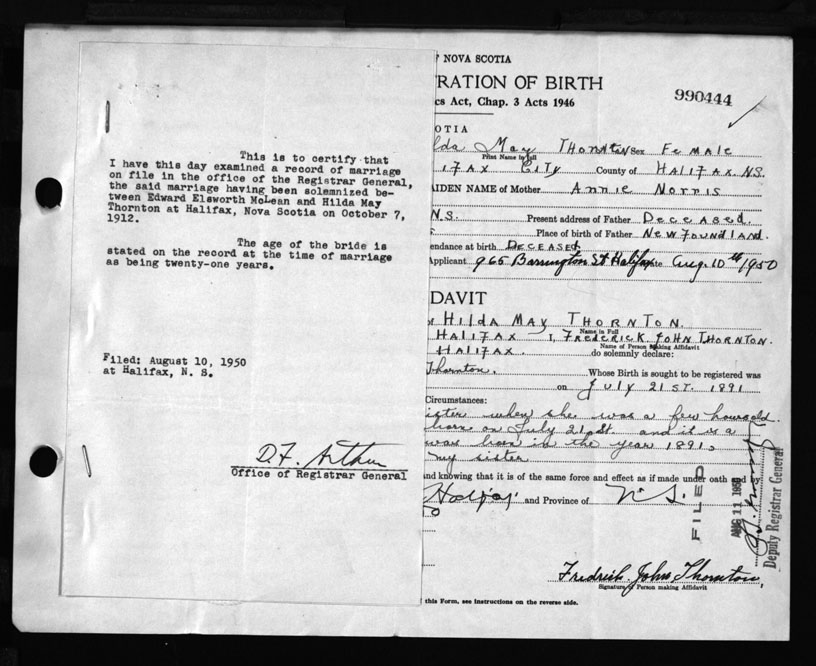 This is to certify that
I have this day examined a record of marriage
on file in the office of the Registrar General,
the said marriage having been solemnized be-
tween Edward Elsworth McLean and Hilda May
Thornton at Halifax, Nova Scotia on October 7,
1912.
The age of the bride is
stated on the record at the time of marriage
as being twenty-one years.
Filed: August 10, 1950
at Halifax, N. S.
D.F. Arthur
Office of Registrar General
NOVA SCOTIA
RATION OF BIRTH
cs Act, Chap. 3 Acts 1946
990444
OTIA
lda May THORNTON Sex FEMALE
Print Name in full
IFAX CITY County of HALIFAX N.S.
AIDEN NAME of Mother ANNIE NORRIS
N.S. Present address of Father DECEASED.
Place of birth of Father NEWFOUNDLAND.
endance at birth DECEASED
Applicant 965 Barrington St Halifax ate Aug. 10th/1950
DAVIT
HILDA MAY THORNTON.
HALIFAX I, FREDERICK JOHN THORNTON.
Name in Full
Name of Person Making Affidavit
HALIFAX. do solemnly declare:
Thornton. Whose Birth is sought to be registered was
on July 21ST. 1891
Circumstances:
ister when she was a few hours old.
born on July 21st. and it is a
was born in the year 1891.
my sister
nd knowing that it is of the same force and effect as if made under oath and by
Halifax and Province of N.S.
FILED
AUG 11 1950
Deputy Registrar General
Fredrick John Thornton,
Signature of Person making Affidavit
this Form, see instructions on the reverse side.